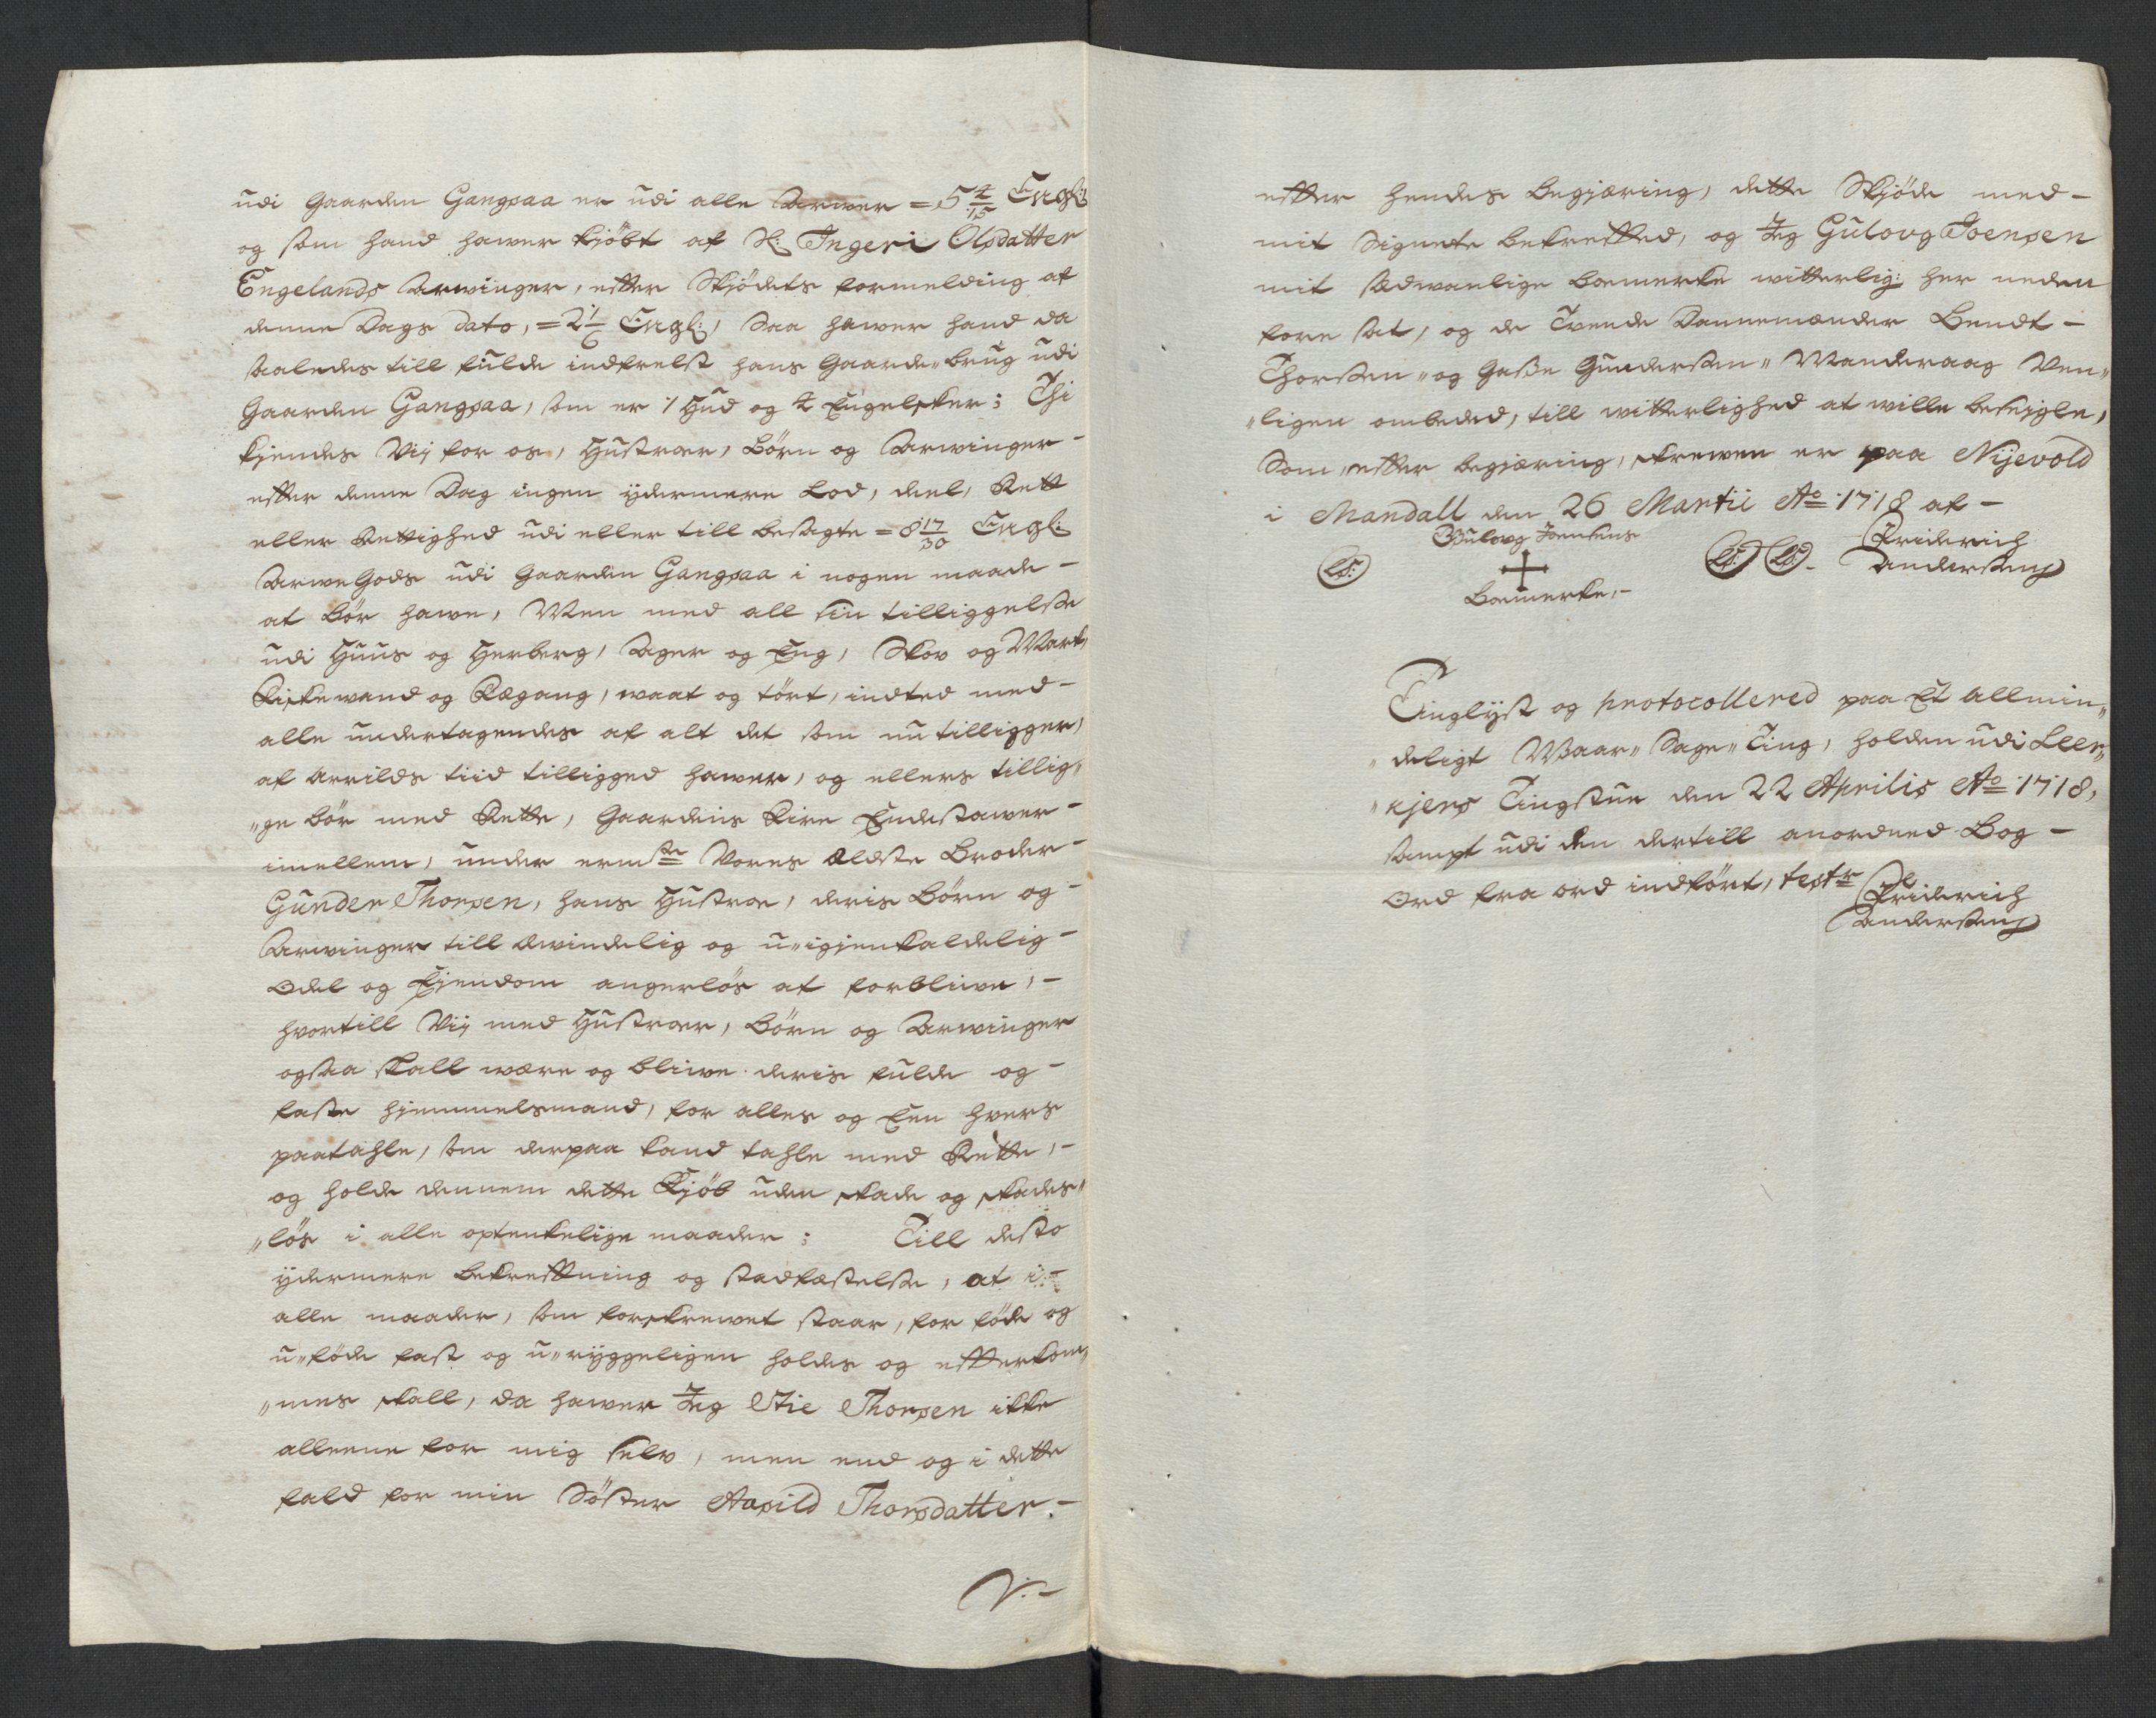 udi Gaarden Gangsaa er udi alle Arwer = 5 4/15 Engl:
og som hand hawer kjöbt af Sl: Ingeri Olsdatter
Engelands Arwinger, efter Skjödets formelding af
denne Dags dato, = 2 1/6 Engl:, Saa hawer hand da
saaledes till fulde indfrelst hans Gaarde„brug udi
Gaarden Gangsaa, som er 1 Hud og 4 Engelsker; Thi
kjendes Vij for os, Hustroer, Börn og Arwinger -
efter denne Dag ingen ydermere Lod, deel, Rett
eller Rettighed udi eller till besagte = 8 17/30 Engl:
ArweGods udi Gaarden Gangsaa i nogen maade -
at bör hawe, Men med all sin tilliggelse
udi Huus og Herberg, Ager og Eng, Skov og Mark,
Fiskewand og Fægang, waat og tört, indted med -
alle undertagendes af alt det som nu tilligger,
af Arrilds tiid tilligged hawer, og ellers tillig„
„ge bör med Rette, Gaardens Fire Endestawer -
imellem, under ermste Vores Eldste Broder -
Gunder Thorsen, hans Hustroe, deris Börn og -
Arwinger till Æwindelig og u„igjenkaldelig -
Odel og Ejendom angerlös at forbliwe, -
hvortill Vij med Hustroer, Börn og Arwinger
ogsaa skall være og bliwe deris fulde og -
faste hjemmelsmand, for alles og Een hvers
paatahle, som derpaa kand tahle med Rette, -
og holde dennem dette Kjöb uden skade og skades„
„lös i alle optenkelige maader; Till desto
ydermere bekreftning og stadfæstelse, at i -
alle maader, som forskrewet staar, for föde og
u„föde fast og u„ryggeligen holdes og efterkom„
„mes skall, da hawer Jeg Stie Thorsen ikke
alleene for mig selv, men end og i dette
fald for min Söster Aasild Thorsdatter. -
V: -
efter hendes begjæring, dette Skjöde med -
mit Signete bekrefted, og Jeg Gulovg Joensen
mit sædwanlige Boemerke witterlig: her neden
fore sat, og de Tvende Dannemænder Bendt -
Thorsen„ og Gasse Gundersen„ Manderaag Ven„
„ligen ombeded, till witterlighed at wille besejgle,
Som, efter begjæring, skrewen er paa Nijevold
i Mandall den 26 Martii Ao 1718 af -
Gulovg Joensens
Friderich
(LS:) (LS:) (LS:) - Andersen
Boemerke, -
Tinglyst og protocollered paa Et Allmin„
„deligt Waar„Sage„Ting, holden udi Leer„
„kjers Tingstue den 22 Aprilis Ao 1718,
sampt udi den dertill anordned Bog -
Ord fra ord indfört, testr
Friderich
Andersen